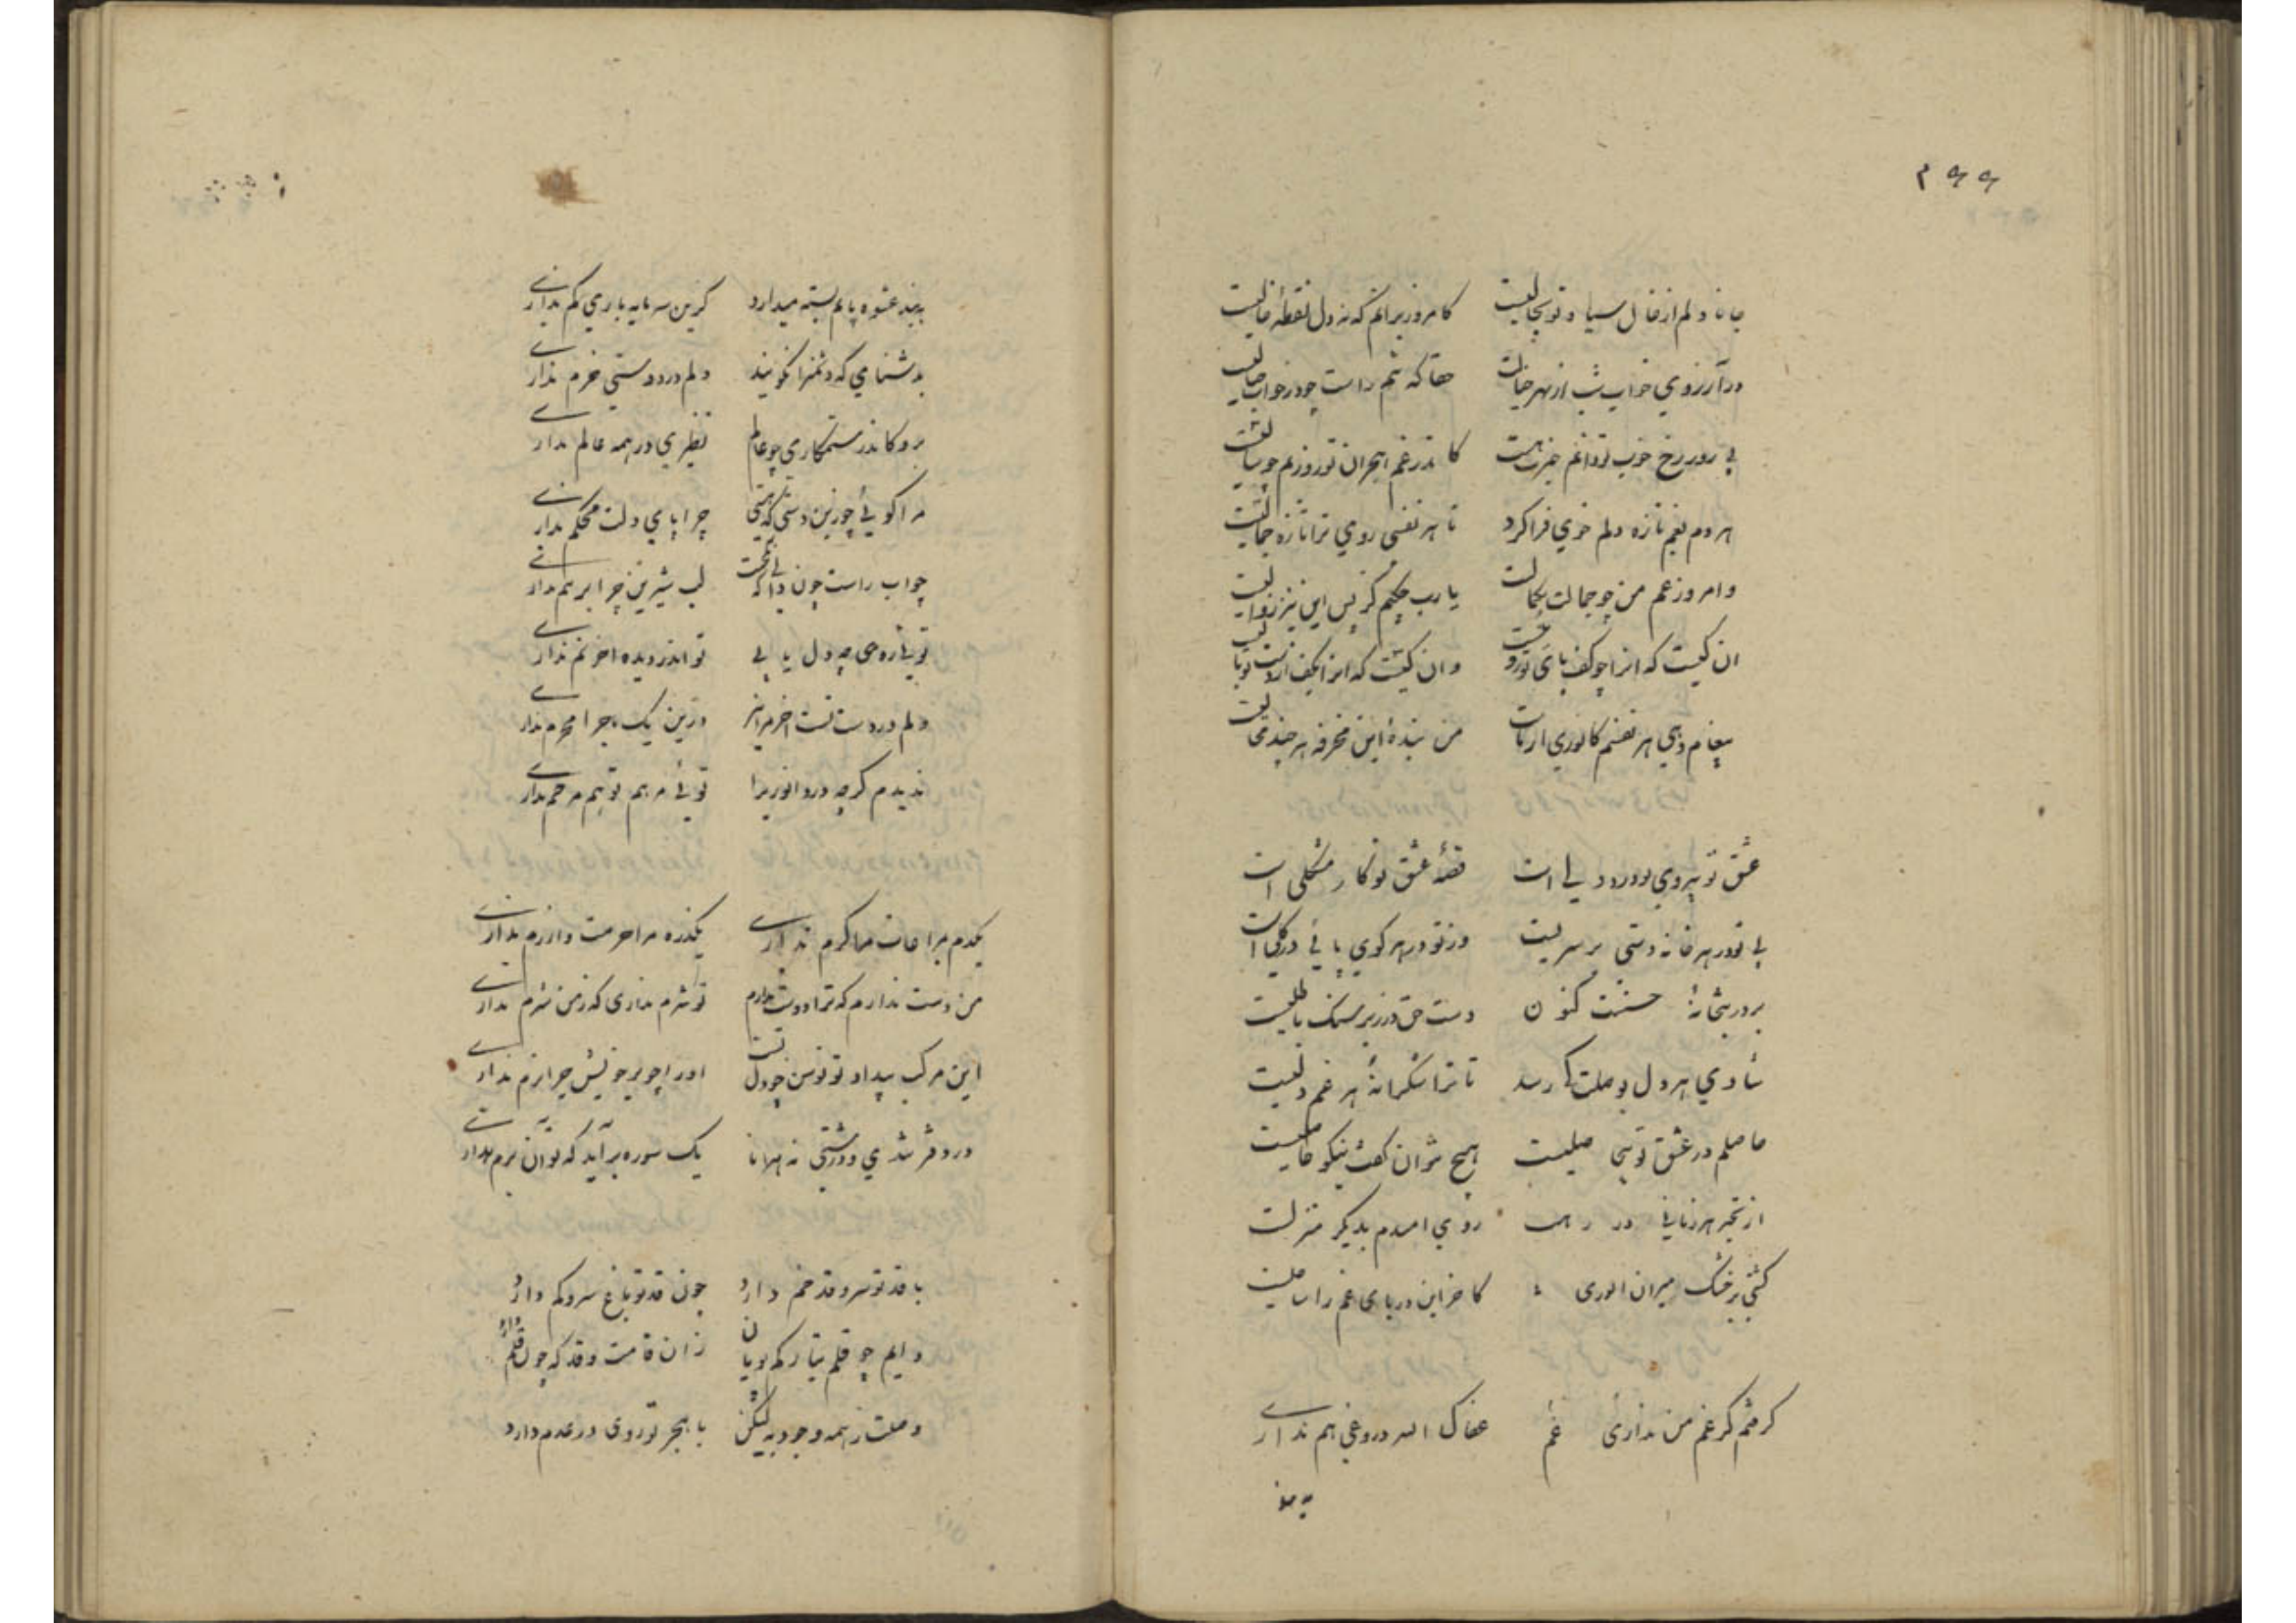 ۴۹۹
جانا دلم از خال سیاه تو بحالیست کامروز برانم که نه دل نقطهٔ خالیست
در آرزوی خواب شب از بهر خیالت حقا که تنم راست چو در خواب خیالیست
بی روز رخ خوب تو دانم خبرت هست کاندر غم هجران تو روزم چو سالیست
هر دم بغم تازه دلم خوی فرا کرد تا هر نفسی روی ترا تازه جمالیست
وامروز غم من چو جمالت بکمالست یارب چکنم گر پس این نیز زوالیست
ان کیست که انرا چو کف پای تو رویست وان کیست که انرا بکف از دست تو مالیست
پیغام دهی هر نفسم کانوری از ماست من بندهٔ این مخرقه هر چند محالیست
عشق تو بیروی تو درد دلی است قصهٔ عشق تو کار مشکلی است
بی تو در هر خانه دستی بر سریست وز تو در هر کوی پائی در گلی است
بر در بتخانهٔ حسنت کنون دست حق در زیر سنگ باطلیست
شادی هر دل بوصلت کی رسد تا ترا شکرانهٔ هر غم دلیست
حاصلم در عشق تو بیحاصلیست هیچ نتوان گفت نیکو حاصلیست
از تحیر هر زمانی در رهت روی امیدم بدیگر منزلست
کشتی بر خشک میران انوری کاخر این دریای غم را ساحلیست
گرفتم گر غم من نداری غم عفاک الله دروغی هم نداری
ببند
ببند عشوه پایم بسته میدارد کزین سرمایه باری کم نداری
بدشنامی که دشمنرا نگویند دلم در دوستی خرم نداری
برو کاندر ستمکاری چو عالم نظیری در همه عالم نداری
مرا گوئی چو زین دستی که هستی چرا پای دلت محکم نداری
جواب راست چون دانی که تلخست لب شیرین چرا برهم نداری
تو باری ره چه دل یابی تو اندر دیده اخر نم نداری
دلم در دست تست اخر مرا نیز درین یک ماجرا محرم نداری
ندیدم گرچه درد انوری را توئی مرهم تو هم مرهم نداری
یکدم بمراعات مرا گرم نداری یکذره مرا حرمت و آزرم نداری
من دست ندارم که ترا دوست ندارم تو شرم نداری که ز من شرم نداری
این مرکب بیداد تو توسن چو دل تست او را چو بر خویش چرا نرم نداری
در دفتر تندی و درشتی نه همانا یک سوره برآید که تو آن نرم نداری
با قد تو سرو قد خم دارد چون قد تو باغ سرو کم دارد
دایم چو قلم بتارکم پویان زان قامت و قد که چون قلم دارد
وصلت ز همه وجود به لیکن با هجر تو روی در عدم دارد